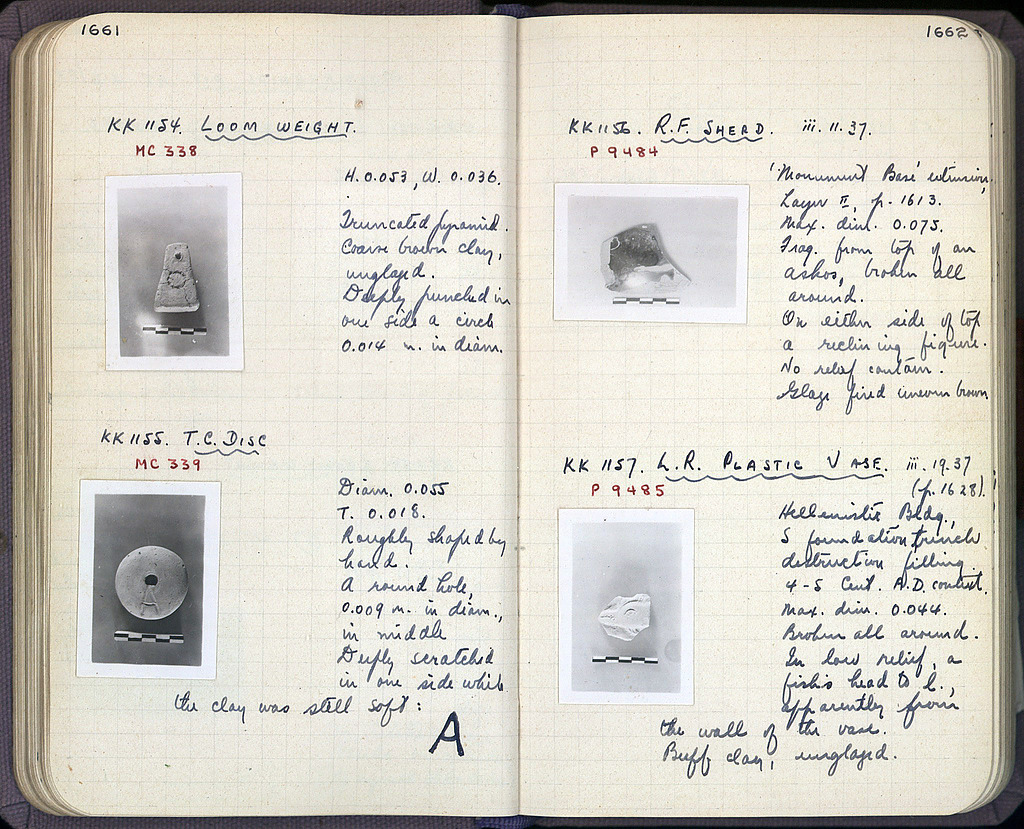 1661
KK 1154. LOOM WEIGHT.
MC 338
H. 0.053, W. 0.036.
Truncated pyramid.
Coarse brown clay,
unglazed.
Deeply punched in
one side a circle
0.014 m. in diam.
KK 1155. T.C. DISC
MC 339
Diam. 0.055
T. 0.018.
Roughly shaped by
hand.
A round hole,
0.009 m. in diam.,
in middle
Deeply scratched
in one side while
the clay was still soft:
A
1662
KK 1156. R.F. SHERD. iii. 11. 37.
P 9484
'Monument Base' extension,
Layer II, p. 1613.
Max. dim. 0.075.
Frag. from top of an
askos, broken all
around.
On either side of top
a reclining figure.
No relief contour.
Glaze fired uneven brown
KK 1157. L.R. PLASTIC VASE. iii. 19. 37
(p. 1628).
P 9485
Hellenistic Bldg.,
S foundation trench
destruction filling.
4-5 Cent. A.D. context.
Max. dim. 0.044.
Broken all around.
In low relief, a
fish's head to l.,
apparently from
the wall of the vase.
Buff clay, unglazed.